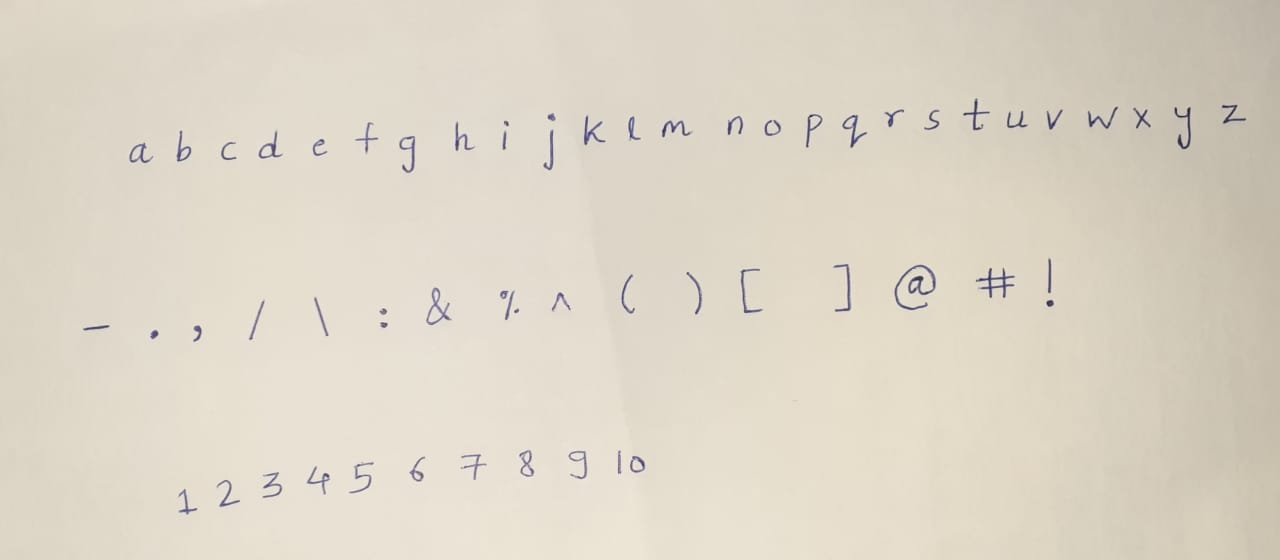 a b c d e f g h i j k l m n o p q r s t u v w x y z
- . , / \ : & % ^ ( ) [ ] @ # !
1 2 3 4 5 6 7 8 9 10